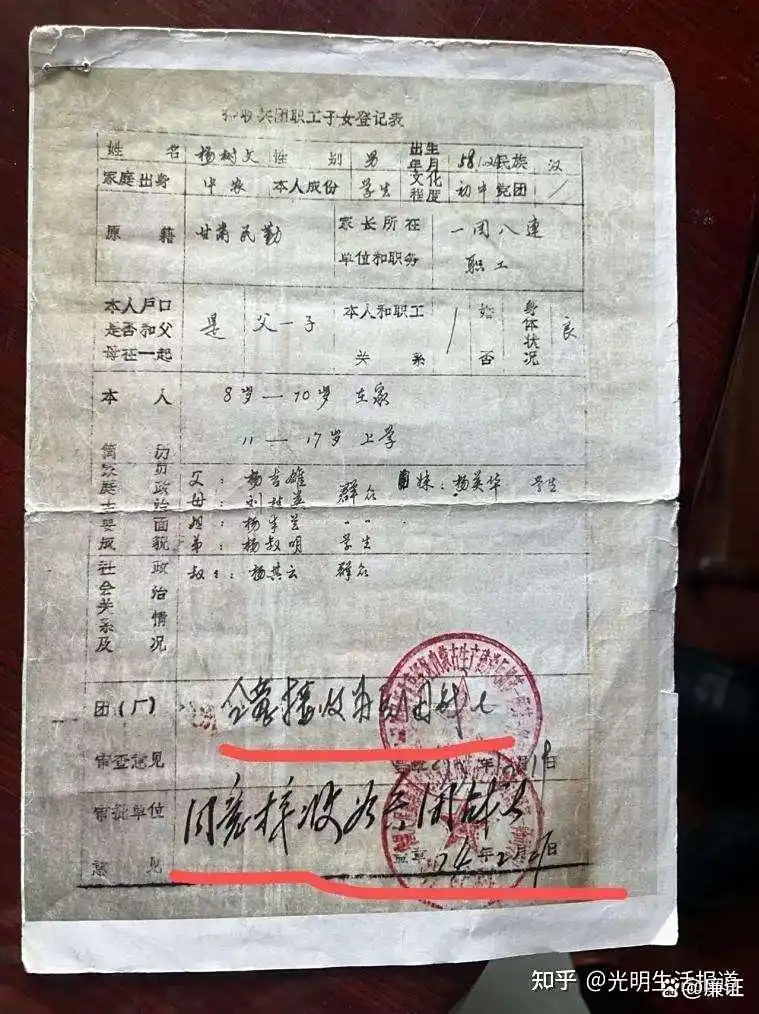 兵团职工子女登记表
姓名 杨树文 性别 男 出生年月 58.12 民族 汉
家庭出身 中农 本人成份 学生 文化程度 初中 党团 /
原籍 甘肃民勤 家长所在单位和职务 一团八连 职工
本人户口是否和父母在一起 是 父一子 本人和职工关系 / 婚否 身体状况 良
本人简历
8岁—10岁 在家
11—17岁 上学
家庭主要成员政治面貌
父：杨吉雄 群众 妹：杨英华 学生
母：
姐：杨
弟：杨叔明 学生
社会关系及政治情况
叔：杨其云 群众
团（厂）审查意见
接收为兵团战士
审批单位意见
同意接收为兵团战士
盖章 74年2月
知乎 @光明生活报道
@廉证